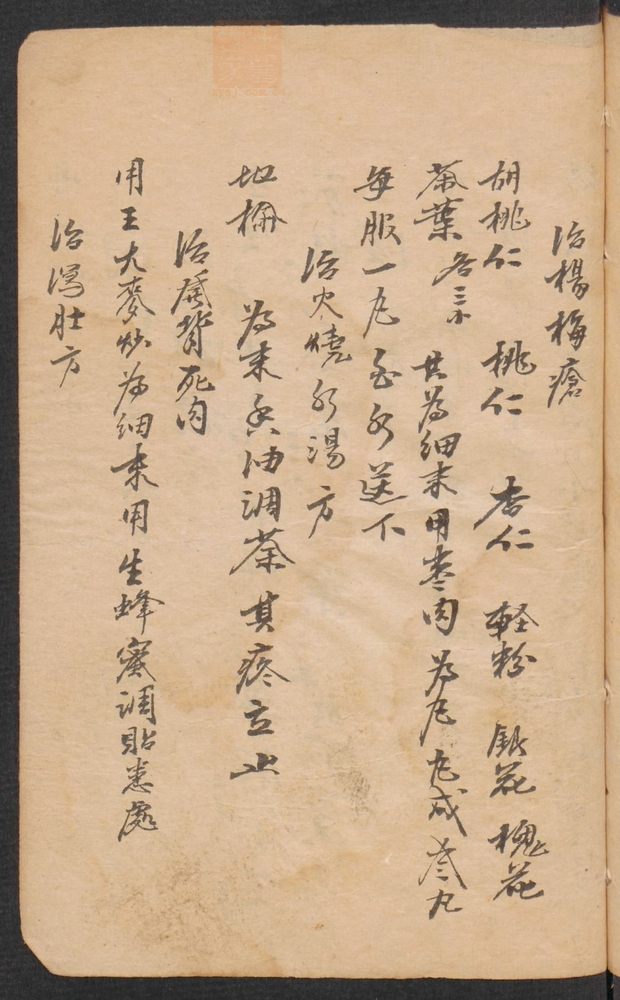 治楊梅瘡
胡桃仁 桃仁 杏仁 軽粉 銀花 槐花
茶葉 各三小 共為細末用枣肉為尼 尼成叁九
每服一尼 白水送下
治火燒水湯方
地榆 為末香油調茶 其疼立止
治發背死肉
用王大麥炒為細末用生蜂蜜調貼患處
治瀉肚方